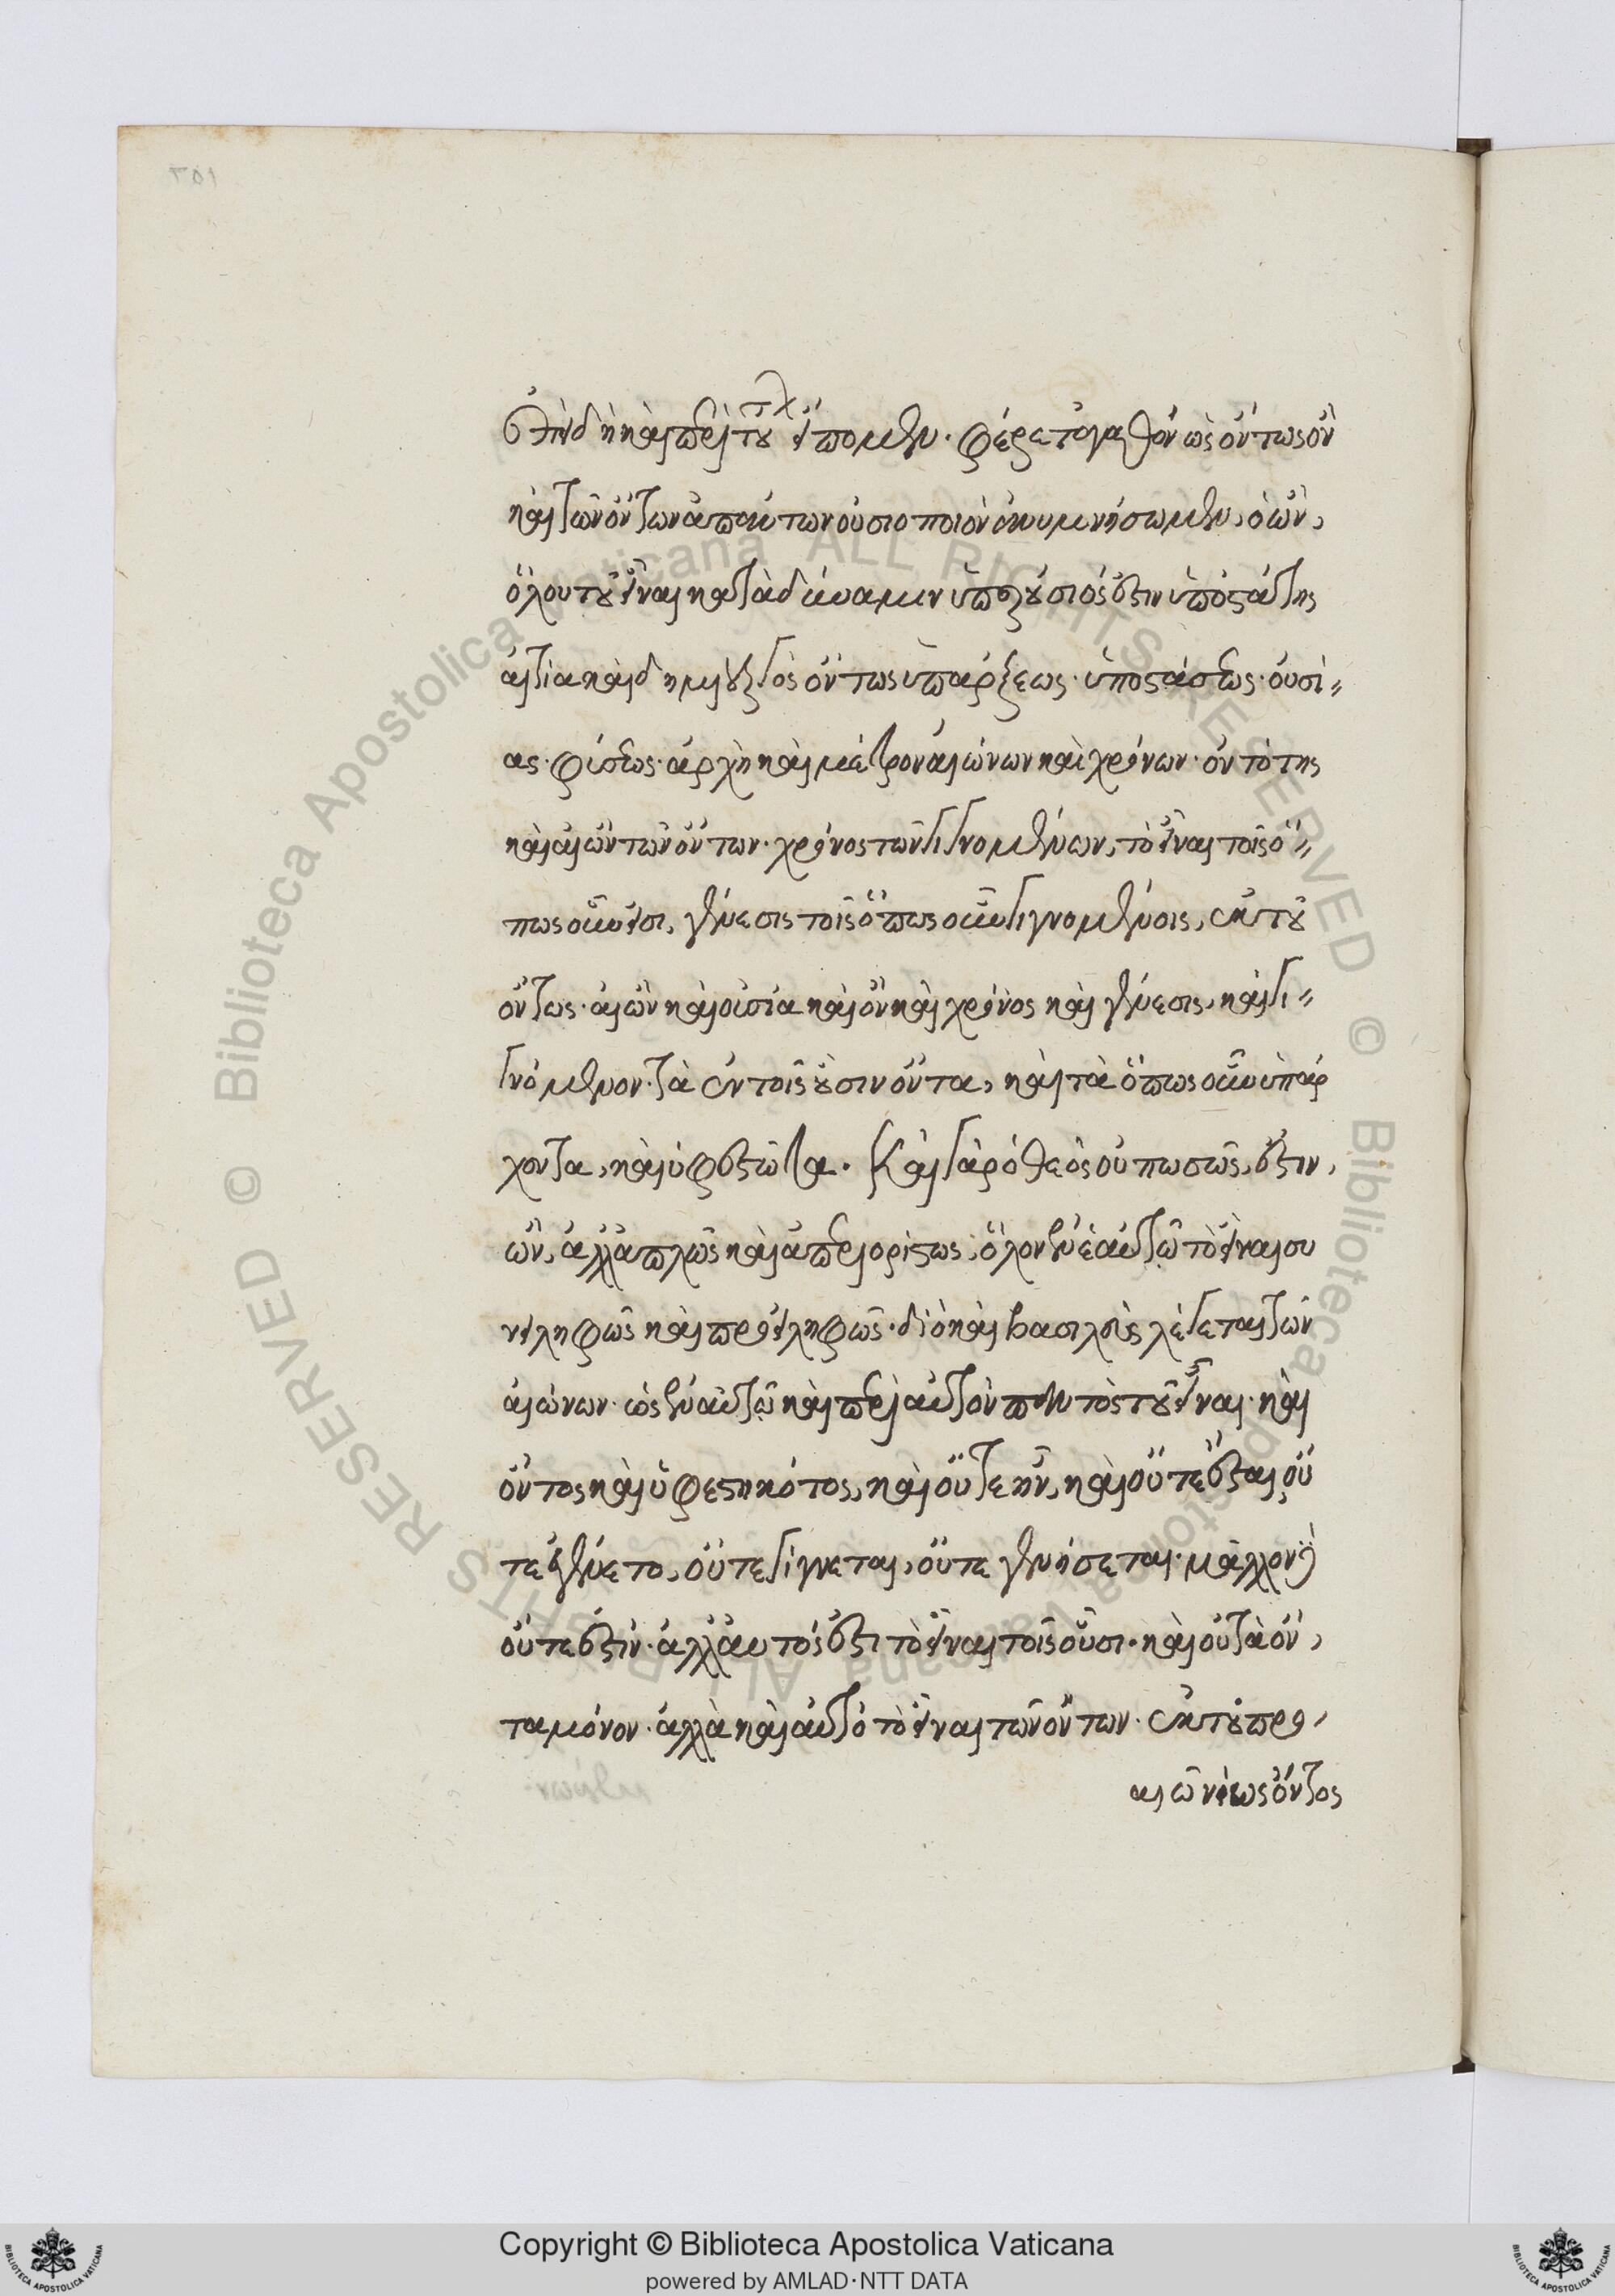 ἐπειδὴ καὶ περὶ τούτων εἴπομεν. φέρε τἀγαθὸν ὡς ὄντως ὂν
καὶ τῶν ὄντων ἁπάντων οὐσιοποιὸν ἀνυμνήσωμεν, ὁ ὢν,
ὅλου τοῦ εἶναι κατὰ δύναμιν ὑπερούσιός ἐστιν ὑποστάτης
αἰτία καὶ δημιουργὸς ὄντως ὑπάρξεως· ὑποστάσεως· οὐσί-
ας· φύσεως· ἀρχὴ καὶ μέτρον αἰώνων καὶ χρόνων· ὀντότης
καὶ αἰὼν τῶν ὄντων· χρόνος τῶν γιγνομένων, τὸ εἶναι τοῖς ὅ-
πως οὖν εἶσι, γένεσις τοῖς ὅπως οὖν γιγνομένοις, ἐκ τοῦ
ὄντως· αἰὼν καὶ οὐσία καὶ ὂν καὶ χρόνος καὶ γένεσις, καὶ γι-
γνόμενον· τὰ ἐν τοῖς οὖσιν ὄντα, καὶ τὰ ὅπως οὖν ὑπάρ
χοντα, καὶ ὑφεστῶτα. Καὶ γὰρ ὁ θεὸς οὔ πως ὥς, ἐστιν,
ὢν, ἀλλ' ἁπλῶς καὶ ἀπεριορίστως, ὅλον ἐν ἑαυτῷ τὸ εἶναι συ
νειληφὼς καὶ προειληφὼς· διὸ καὶ βασιλεὺς λέγεται τῶν
αἰώνων· ὡς ἐν αὐτῷ καὶ περὶ αὐτὸν παντὸς τοῦ εἶναι· καὶ
ὄντος καὶ ὑφεστηκότος, καὶ οὔτε ἦν, καὶ οὔτε ἔσται, οὔ
τε ἐγένετο, οὔτε γίγνεται, οὔτε γενήσεται· μᾶλλον δὲ
οὔτε ἐστίν· ἀλλ' αὐτός ἐστι τὸ εἶναι τοῖς οὖσι· καὶ οὐ τὰ ὄν,
τα μόνον· ἀλλὰ καὶ αὐτὸ τὸ εἶναι τῶν ὄντων· ἐκ τοῦ προ,
αιωνίως ὄντος